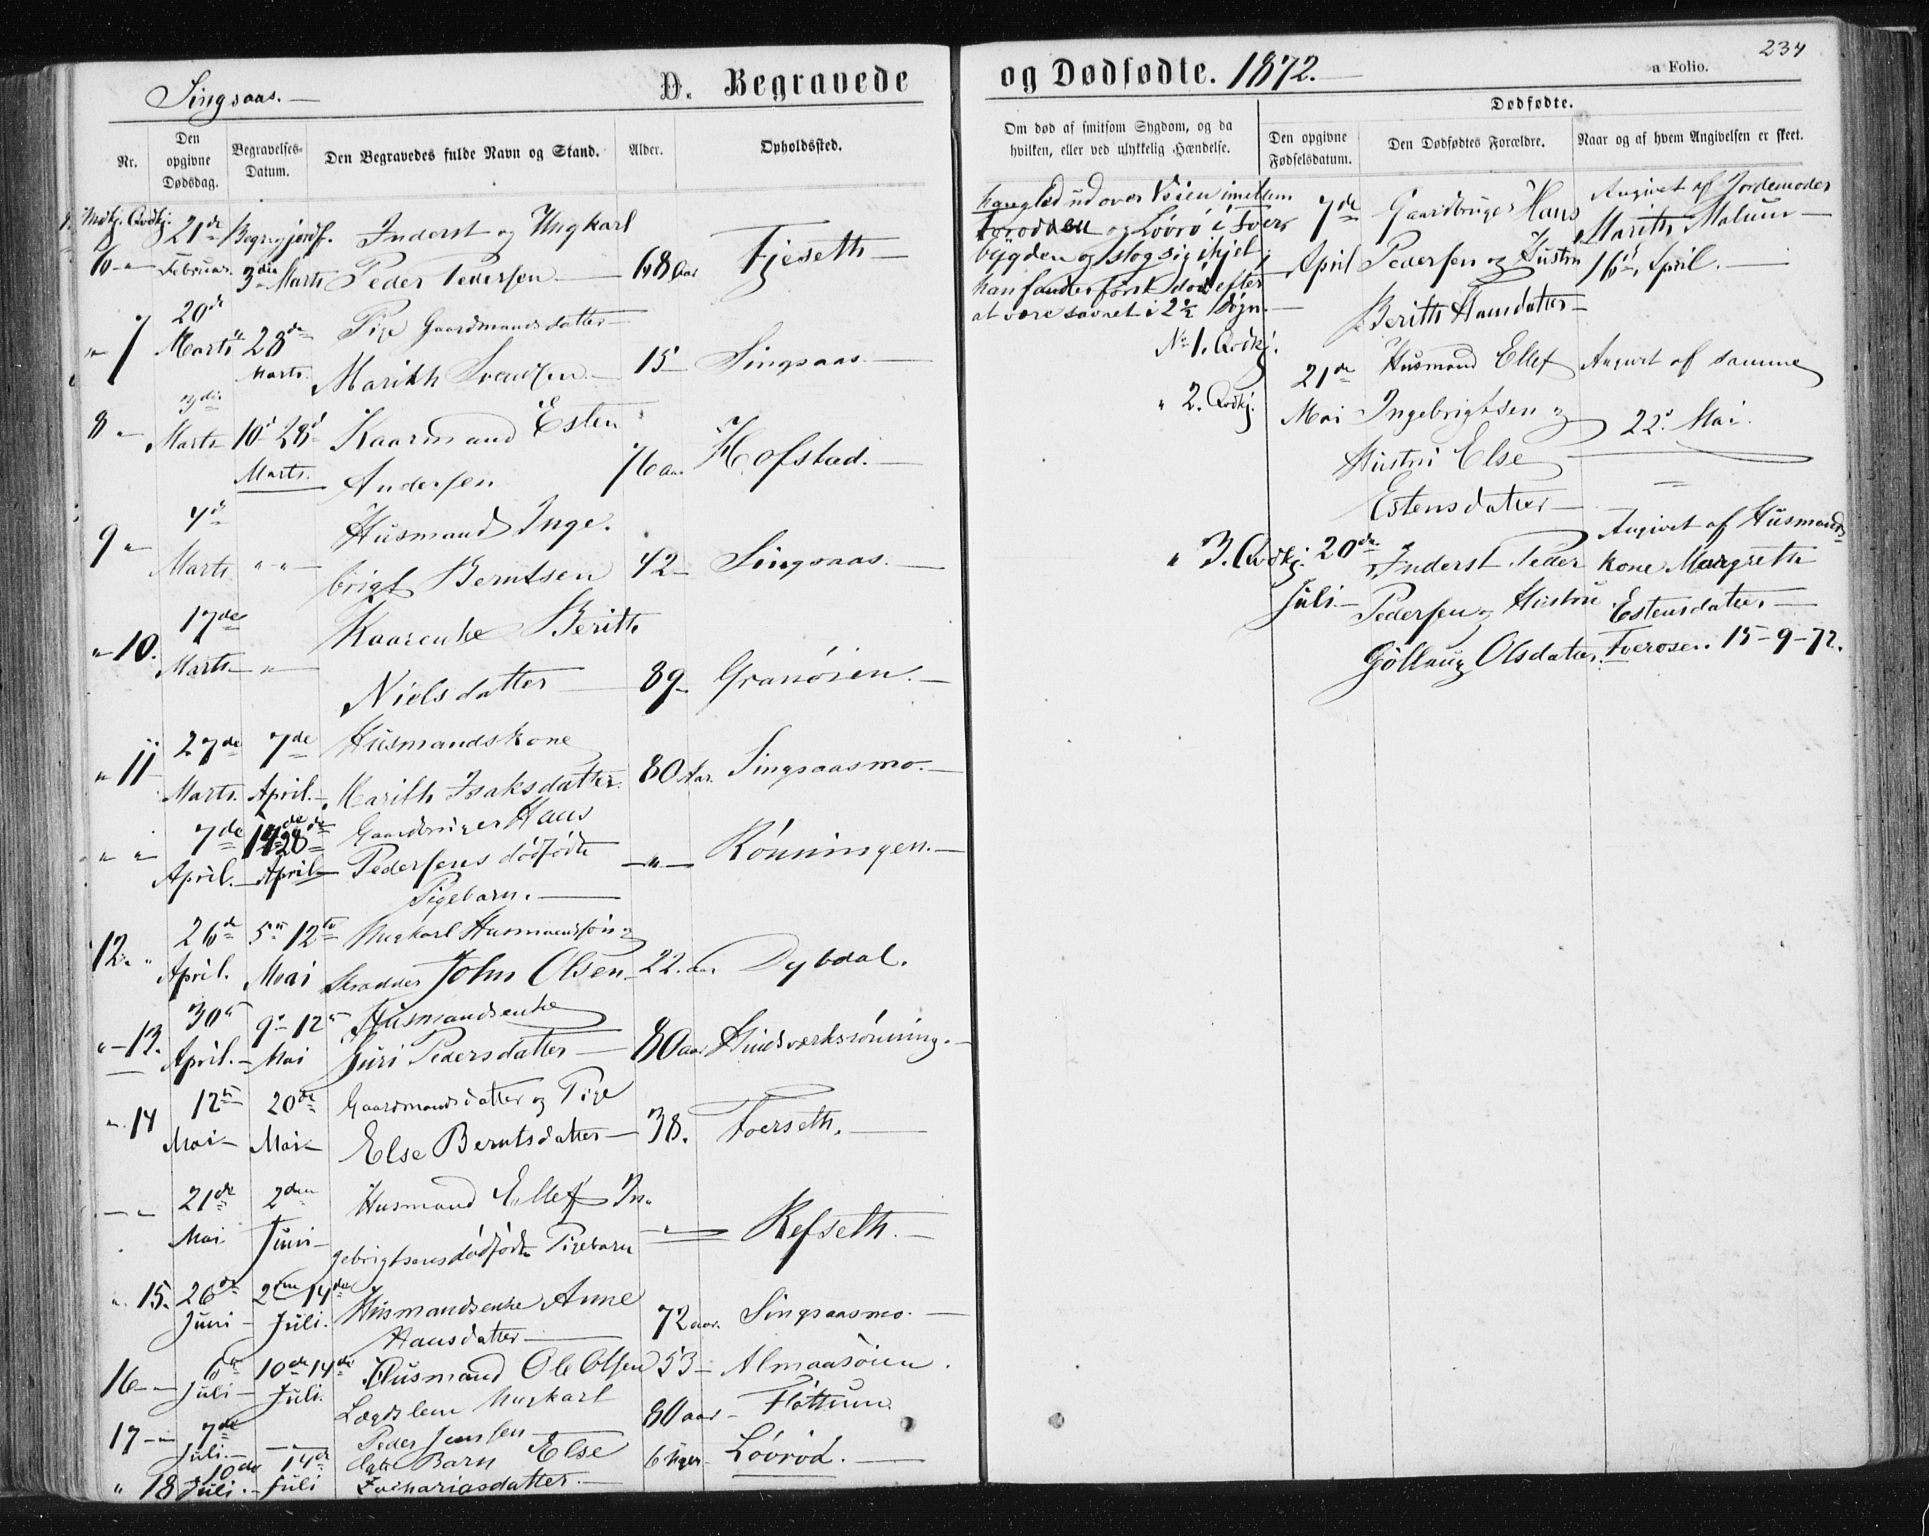 Singsaas.
D. Begravede
Nr.
Den opgivne Dødsdag.
Begravelses-Datum.
Den Begravedes fulde Navn og Stand.
Alder.
Opholdssted.
Mdkj. Qvdkj.
6 21de Februar 3die Marts Inderst og Ungkarl Peder Pedersen 68 Aar Fjeseth
7 20de Marts 28de Marts Pige Gaardmandsdatter Marith Svendsen 15 Singsaas.
8 Marts 10 28 Marts Kaarmand Esten Andersen 76 aar Hofstad.
9 Marts Husmand Ingebrigt Berntsen 42 Singsaas.
10. 17de Marts Kaarenke Berith Nielsdatter 89 Granøien.
11 27de Marts 7de April. Husmandskone Marith Isaksdatter 80 Aar. Singsaasmo.
7de April. 28de April Gaardbruger Hans Pedersens dødfødte Pigebarn. Rønningen.
12. 26de April. 5te 12te Mai Ungkarl Husmandssøn og Skrædder John Olsen 22. aar Dybdal.
13. 30 April. 9 12 Mai Husmandsenke Guri Pedersdatter 80 aar Hindsværksrønning.
14 12te Mai 20de Mai Gaardmandsdatter og Pige Else Berntsdatter 38. Foerseth.
21de Mai 2den Juni Husmand Ellef Ingebrigtsens dødfødte Pigebarn Refseth.
15. 26de Juni 2den 14de Juli. Husmandsenke Anne Hansdatter 72 aar. Singsaasmo.
16 6te Juli 10de 14de Juli. Husmand Ole Olsen 53 Almaasøien.
17 7de Juli. Lægdslem Ungkarl Peder Jensen 80 aar Fløttum.
18 10de Juli. 14de Juli Barn Else Zachariasdatter 6 Uger Løvrød.
og Dødfødte. 1872.
a Folio.
234
Om død af smitsom Sygdom, og da hvilken, eller ved ulykkelig Hændelse.
Dødfødte.
Den opgivne Fødselsdatum.
Den Dødfødtes Forældre.
Naar og af hvem Angivelsen er skeet.
han gled ud over Veien imellem
og Løvrø i
bygden og slog sig ihjel
han fandtes først død efter
at være savnet i 2½ Døgn.
No 1. Qvdkj. 7de April Gaardbruger Hans Pedersen og Hustru Berith Hansdatter Angivet af Jordemoder Marith 16de April.
2. Qvdkj. 21de Mai Husmand Ellef Ingebrigtsen og Hustru Else Estensdatter Angivet af samme 22de Mai.
3. Qvdkj. 20de Juli Inderst Peder Pedersen og Hustru Gollaug Olsdatter. Angivet af Husmandskone Margreth Estensdatter Foerosen. 15-9-72.